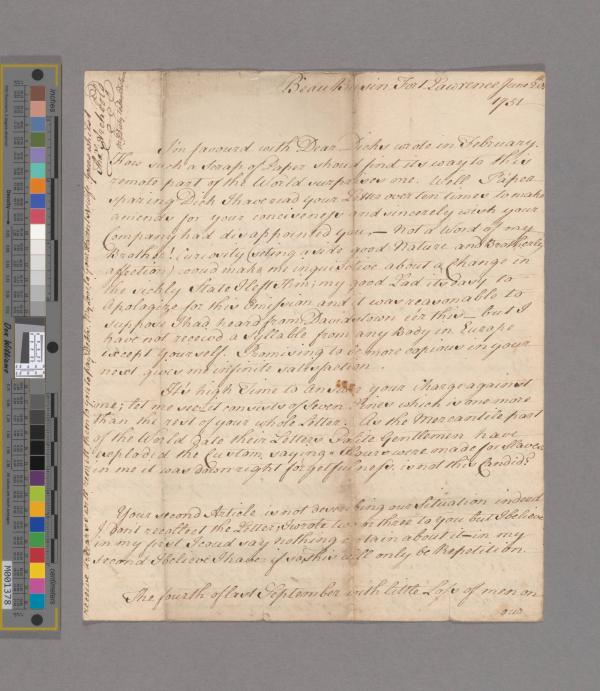 Beaubassin Fort Lawrence June
1751
I'm favourd with Dear Dicks wrote in February.
How such a Scrap of Paper should find its way to this
remote part of the World surprises me. Well Paper
sparing Dick I have read your Letter over ten times to make
amends for your conciveness and sincerely wish your
Company had disappointed you, — Not a Word of my
Brother! Curiosity (seting aside good Nature and Brotherly
affection) woud make me inquisitive about a Change in
the sickly State I left Him; my good Lad its Easy to
Apologize for this Omission and it was reasonable to
suppose I had heard from Davidstown eer this — but I
have not receivd a Syllable from any Body in Europe
except yourself. Promising to be more copious in your
next gives me infinite satisfaction.
It's high Time to answer your Charge against
me; let me see it consists of Seven Lines which is one more
than the rest of your whole Letter. As the Mercantile part
of the World Date their Letters Polite Gentlemen have
exploded the Custom, saying Hours were made for Slaves
in me it was downright forgetfulness, is not this Candid?
Your second Article is not describing our Situation indeed
I dont recollect the Letters I wrote two or three to you but I believe
in my first I coud say nothing certain about it — in my
second I believe I have; if so this will only be Repetition.
The fourth of last September with little Loss of men on
our
inches
centimeters
M001378